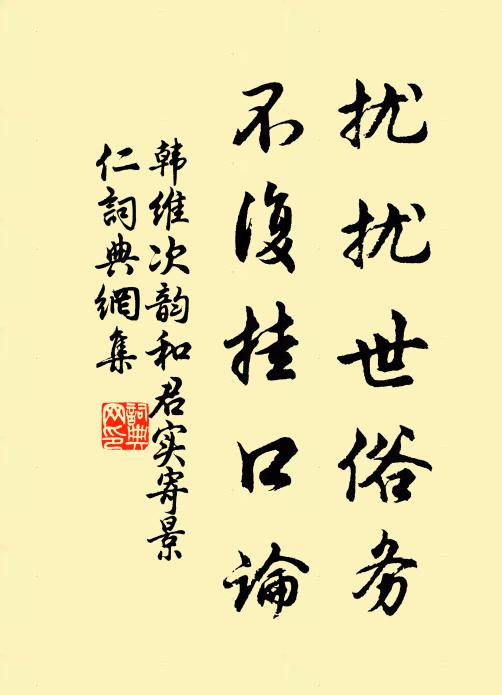 扰扰世俗务
不復挂口论
韩维次韵和君实寄景
仁詞典網集
詞典
网印